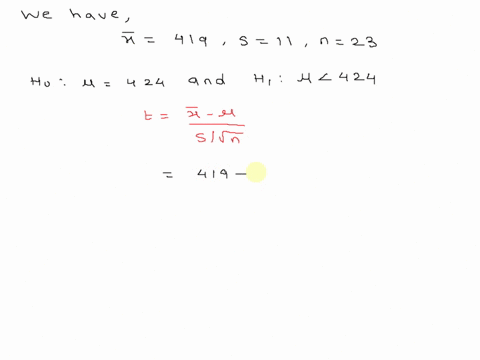 We have,
x̄ = 419, S = 11, n = 23
H₀: μ = 424 and H₁: μ < 424
t = x̄ - μ
S/√n
= 419 -